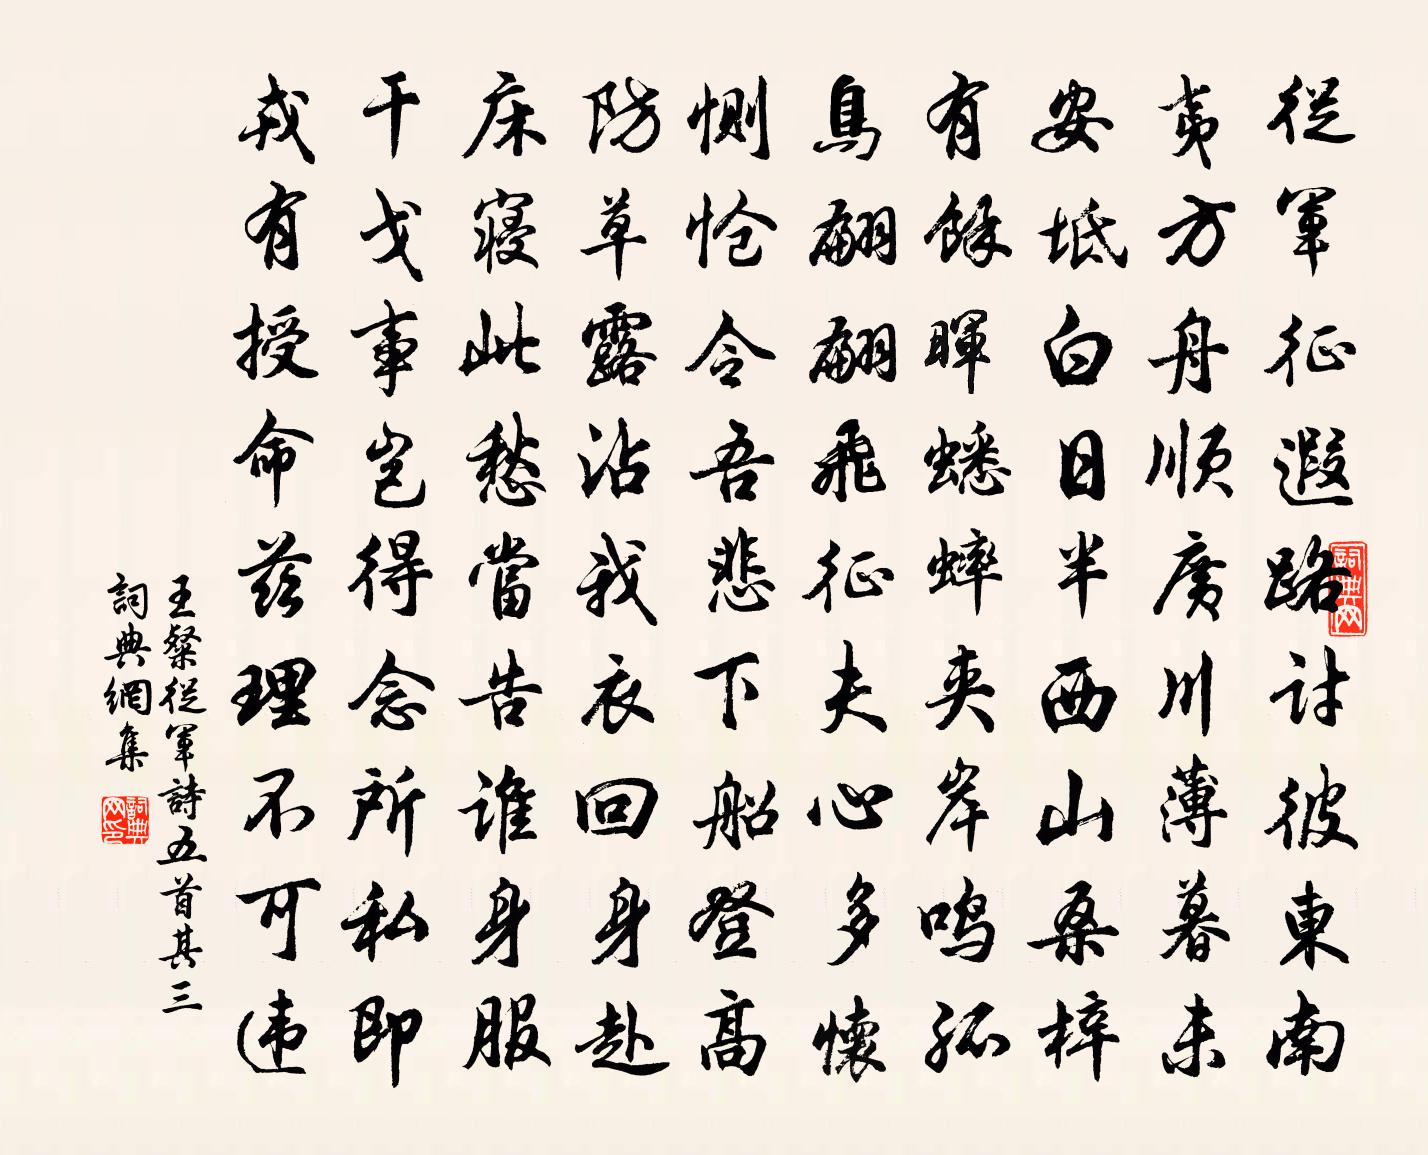 從軍征遐路討彼東南
夷方舟順廣川薄暮未
安坻白日半西山桑梓
有餘暉蟋蟀夾岸鳴孤
鳥翩翩飛征夫心多懷
惻愴令吾悲下船登高
防草露沾我衣回身赴
床寢此愁當告誰身服
干戈事豈得念所私即
戎有授命茲理不可違
王粲從軍詩五首其三
詞典網集
詞典网
詞典网印